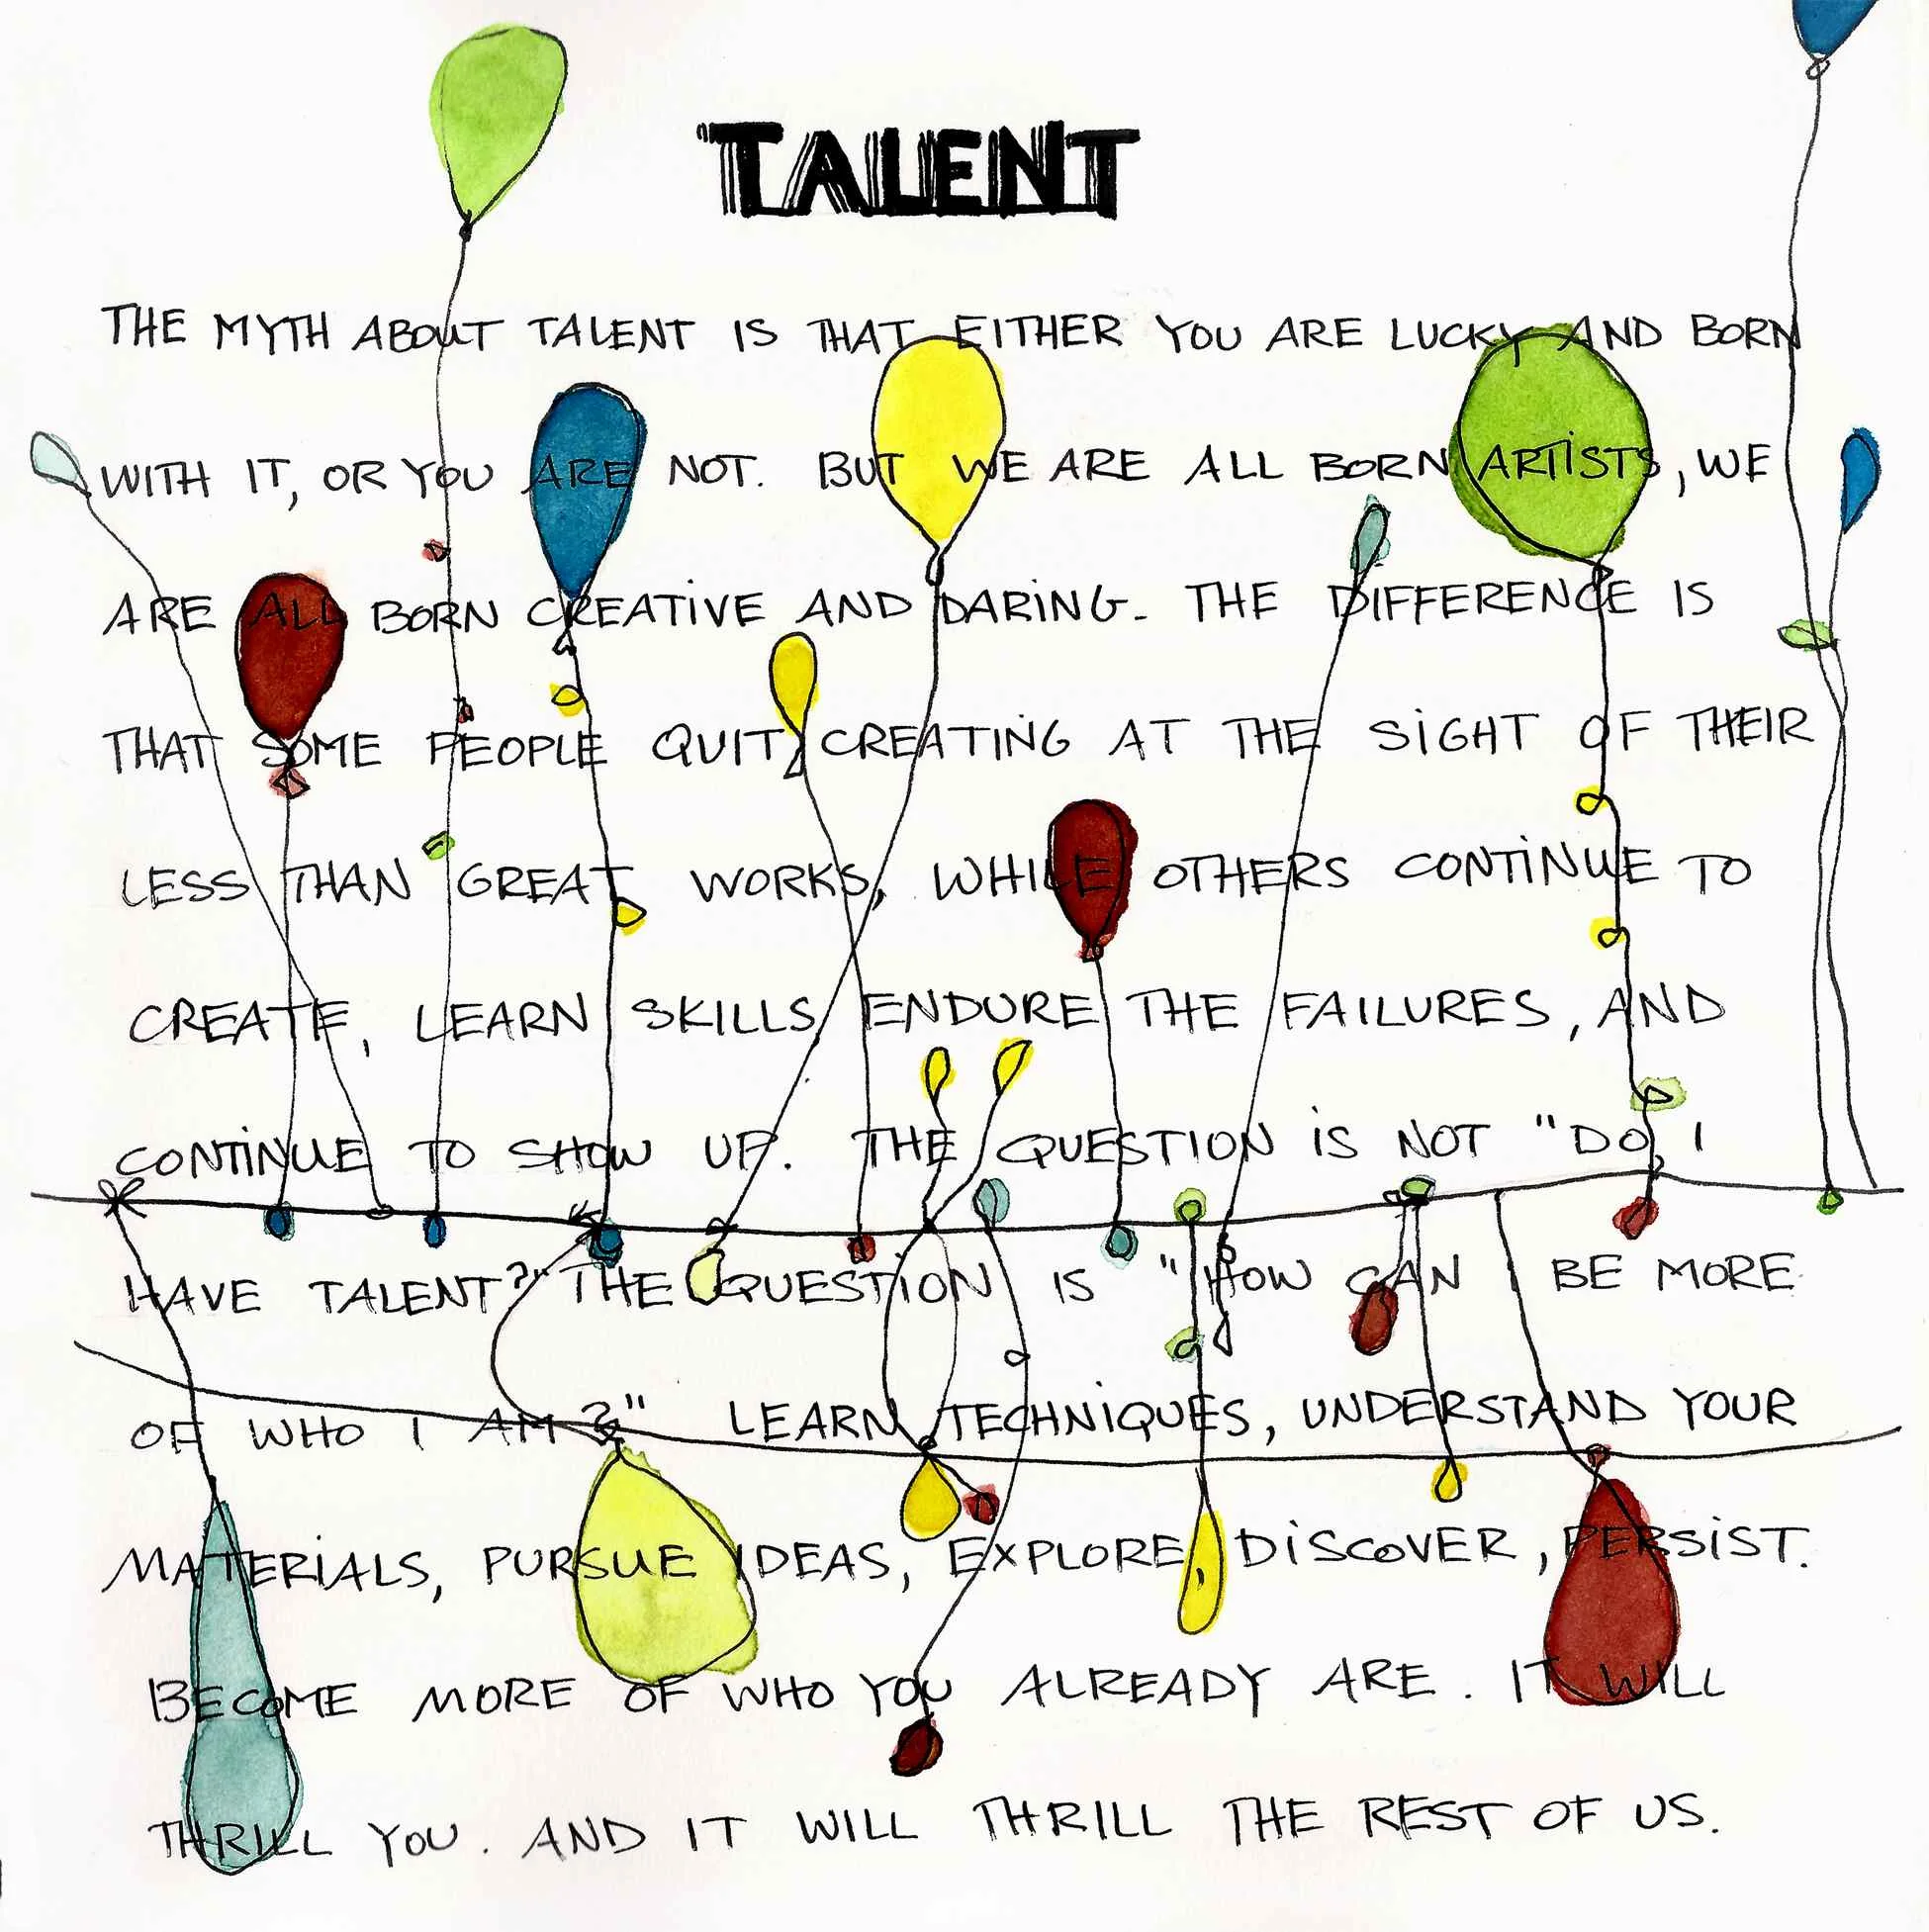 TALENT
THE MYTH ABOUT TALENT IS THAT EITHER YOU ARE LUCKY AND BORN
WITH IT, OR YOU ARE NOT. BUT WE ARE ALL BORN ARTISTS, WE
ARE ALL BORN CREATIVE AND DARING. THE DIFFERENCE IS
THAT SOME PEOPLE QUIT CREATING AT THE SIGHT OF THEIR
LESS THAN GREAT WORKS, WHILE OTHERS CONTINUE TO
CREATE, LEARN SKILLS ENDURE THE FAILURES, AND
CONTINUE TO SHOW UP. THE QUESTION IS NOT "DO I
HAVE TALENT?" THE QUESTION IS "HOW CAN I BE MORE
OF WHO I AM?" LEARN TECHNIQUES, UNDERSTAND YOUR
MATERIALS, PURSUE IDEAS, EXPLORE, DISCOVER, PERSIST.
BECOME MORE OF WHO YOU ALREADY ARE. IT WILL
THRILL YOU. AND IT WILL THRILL THE REST OF US.